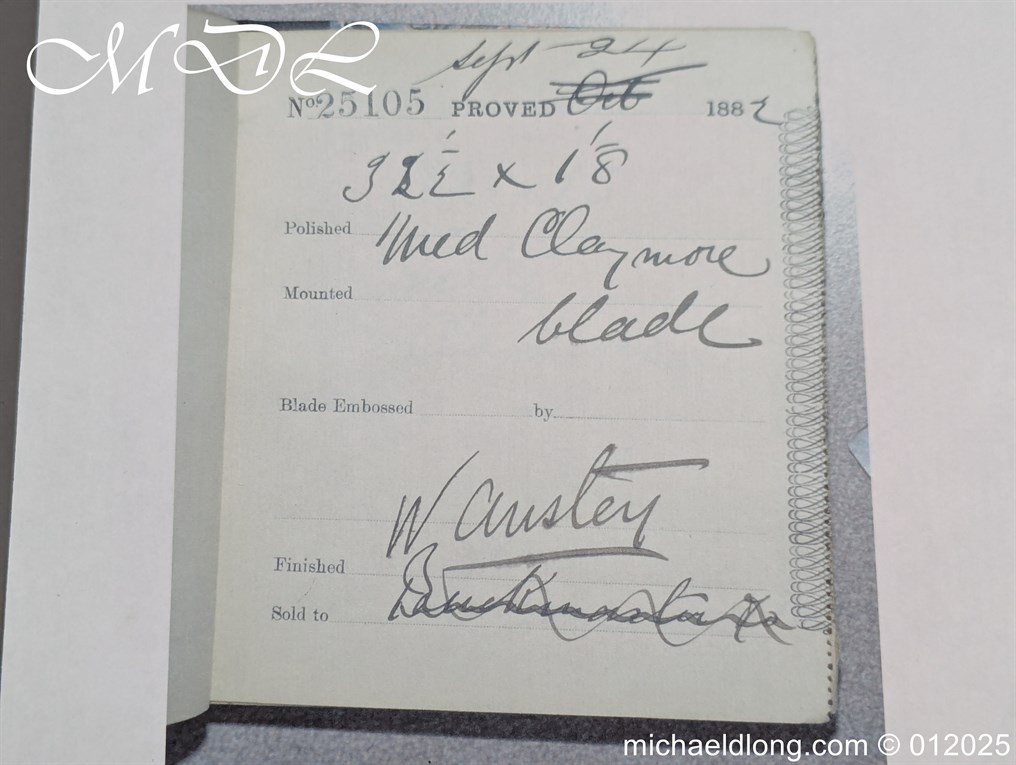 MDL
Sept 24
No. 25105 PROVED Oct 1882
32½ x 1⅛
Polished Med Claymore
Mounted
blade
Blade Embossed by
W Anstey
Finished
Sold to
michaeldlong.com © 012025